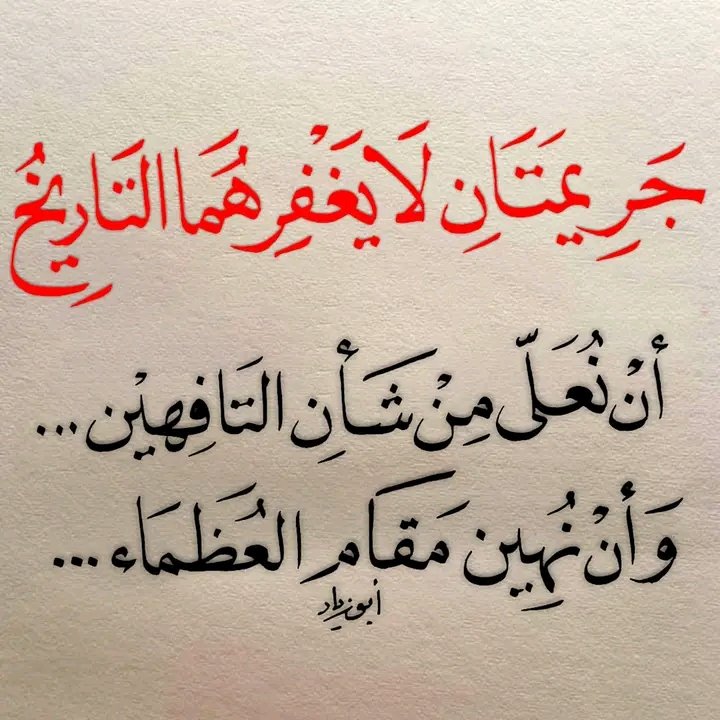 جَرِيمَتَانِ لَا يَغْفِرهُمَا التَارِيخُ
أنْ نُعَلّي مِنْ شَأنِ التَافِهيْن...
وَأنْ نُهِين مَقَام العُظَمَاء...
أبو زياد